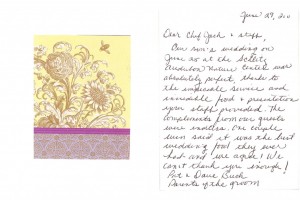 June 29, 210
Dear Chef Jack + staff,
Our son's wedding on
June 20 at the
Audubon Nature Center was
absolutely perfect, thanks to
the impeccable service and
incredible food + presentation
your staff provided. The
compliments from our guests
were endless. One couple
even said it was the best
wedding food they ever
had and we agree! We
can't thank you enough!
Pat + Dave Buck
Parents of the groom